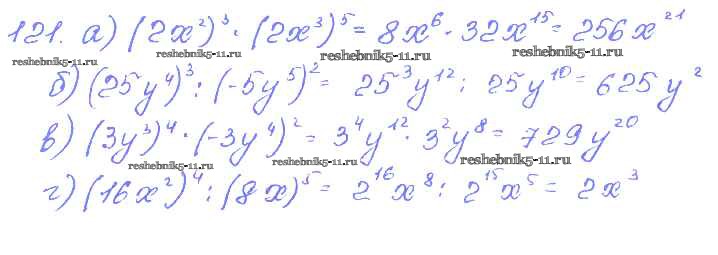 121. а) (2x²)³ · (2x³)⁵ = 8x⁶ · 32x¹⁵ = 256x²¹
reshebnik5-11.ru reshebnik5-11.ru reshebnik5-11.ru reshebnik5-11.ru
б) (25y⁴)³ : (-5y⁵)² = 25³y¹² : 25y¹⁰ = 625y²
в) (3y³)⁴ · (-3y⁴)² = 3⁴y¹² · 3²y⁸ = 729y²⁰
reshebnik5-11.ru reshebnik5-11.ru reshebnik5-11.ru
г) (16x²)⁴ : (8x)⁵ = 2¹⁶x⁸ : 2¹⁵x⁵ = 2x³